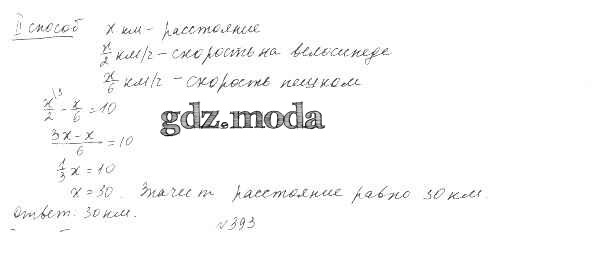 II способ x км - расстояние
x/2 км/ч - скорость на велосипеде
x/6 км/ч - скорость пешком
x/2 \3 - x/6 = 10
gdz.moda
3x - x / 6 = 10
1/3 x = 10
x = 30. Значит расстояние равно 30 км.
ответ: 30 км.
№393